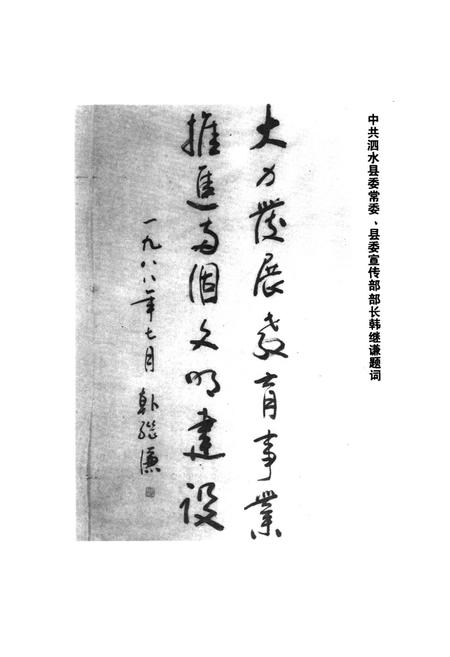 中共泗水县委常委、县委宣传部部长韩继谦题词
大力發展教育事業
推進两個文明建设
一九八八年七月 韩継谦